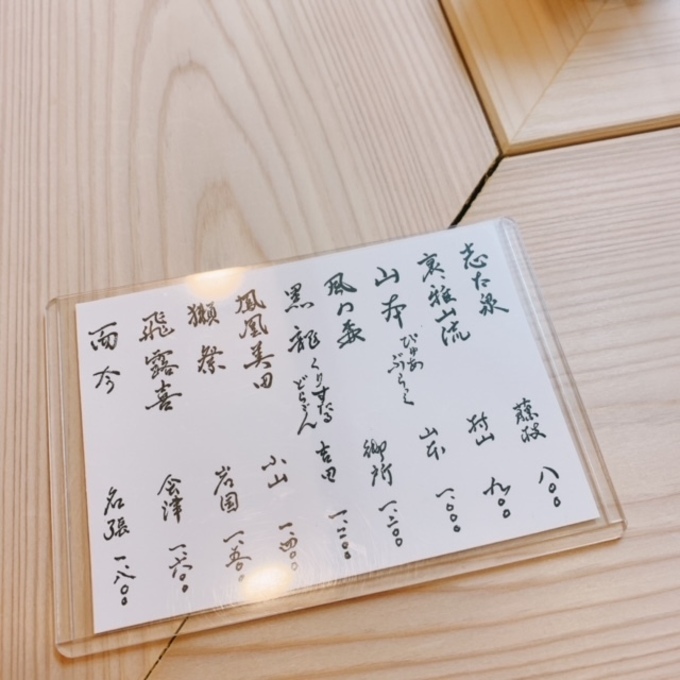 志太泉 藤枝 八〇〇
裏・雅山流 村山 九〇〇
山本 ぴゅあぶらっく 山本 一、〇〇〇
風の森 御所 一、二〇〇
黒龍 くりすたるどらごん 吉田 一、二〇〇
鳳凰美田 小山 一、四〇〇
獺祭 岩国 一、五〇〇
飛露喜 会津 一、六〇〇
而今 名張 一、八〇〇